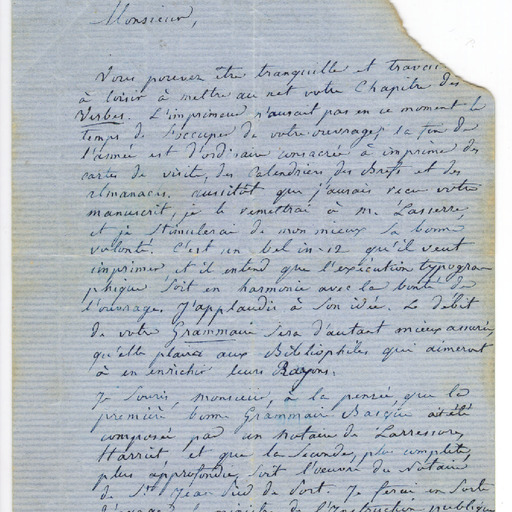 Monsieur,
Vous pouvez être tranquille et travai
à loisir à mettre au net votre Chapitre des
Verbes. L'imprimeur n'aurait pas en ce moment le
temps de s'occuper de votre ouvrage; la fin de
l'année est d'ordinaire consacrée à imprimer des
cartes de visite, des Calendriers des Brefs et des
almanacs. aussitôt que j'aurais reçu votre
manuscrit, je le remettrai à M. Lasserre,
et je stimulerai de mon mieux sa bonne
volonté. C'est un bel in-12 qu'il veut
imprimer et il entend que l'exécution typogra
phique soit en harmonie avec la bonté de
l'ouvrage. J'applaudis à son idée. Le débit
de votre Grammaire sera d'autant mieux assuré,
qu'elle plaira aux Bibliophiles qui aimeront
à en enrichir leurs Rayons.
Je souris, monsieur, à la pensée, que la
première bonne Grammaire Basque a été
composée par un notaire de Larressore,
Harriet et que la seconde, plus complète,
plus approfondie, soit l'œuvre du Notaire
de St Jean Pied de Port. Je ferai en sorte
de l'Instruction publique